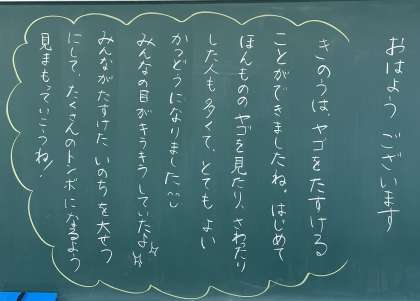 おはよう ございます
きのうは、ヤゴをたすける
ことができましたね。はじめて
ほんもののヤゴを見たり、さわたり
した人も多くて、とても よい
かつどうになりました^^
みんなの目がキラキラしていたよ☆☆
みんながたすけた いのちを大せつ
にして、たくさんのトンボになるよう
見まもっていこうね!